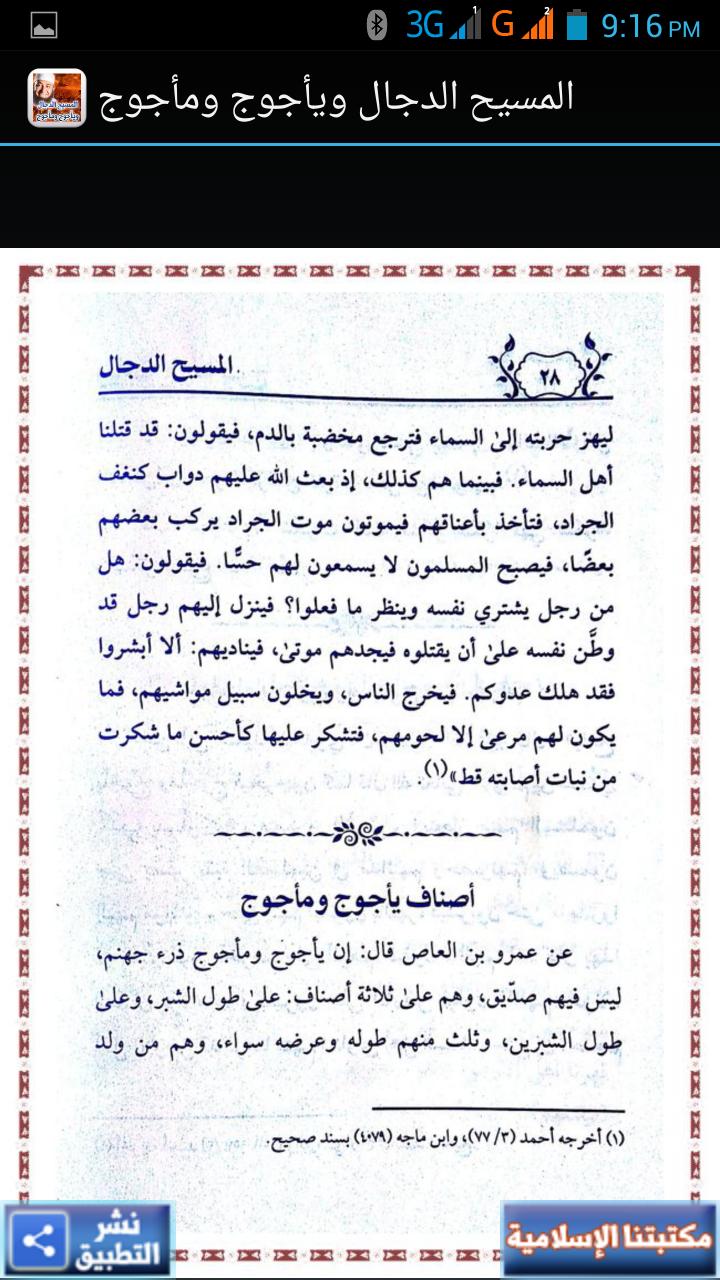 3G 1 G 2 9:16 PM
المسيح الدجال ويأجوج ومأجوج
٢٨ المسيح الدجال
ليهز حربته إلىٰ السماء فترجع مخضبة بالدم، فيقولون: قد قتلنا
أهل السماء. فبينما هم كذلك، إذ بعث الله عليهم دواب كنغف
الجراد، فتأخذ بأعناقهم فيموتون موت الجراد يركب بعضهم
بعضًا، فيصبح المسلمون لا يسمعون لهم حسًّا. فيقولون: هل
من رجل يشتري نفسه وينظر ما فعلوا؟ فينزل إليهم رجل قد
وطَّن نفسه علىٰ أن يقتلوه فيجدهم موتىٰ، فيناديهم: ألا أبشروا
فقد هلك عدوكم. فيخرج الناس، ويخلون سبيل مواشيهم، فما
يكون لهم مرعىٰ إلا لحومهم، فتشكر عليها كأحسن ما شكرت
من نبات أصابته قط»(١).
أصناف يأجوج ومأجوج
عن عمرو بن العاص قال: إن يأجوج ومأجوج ذرء جهنم،
ليس فيهم صدّيق، وهم علىٰ ثلاثة أصناف: علىٰ طول الشبر، وعلىٰ
طول الشبرين، وثلث منهم طوله وعرضه سواء، وهم من ولد
(١) أخرجه أحمد (٣/ ٧٧)، وابن ماجه (٤٠٧٩) بسند صحيح.
مكتبتنا الإسلامية
نشر
التطبيق